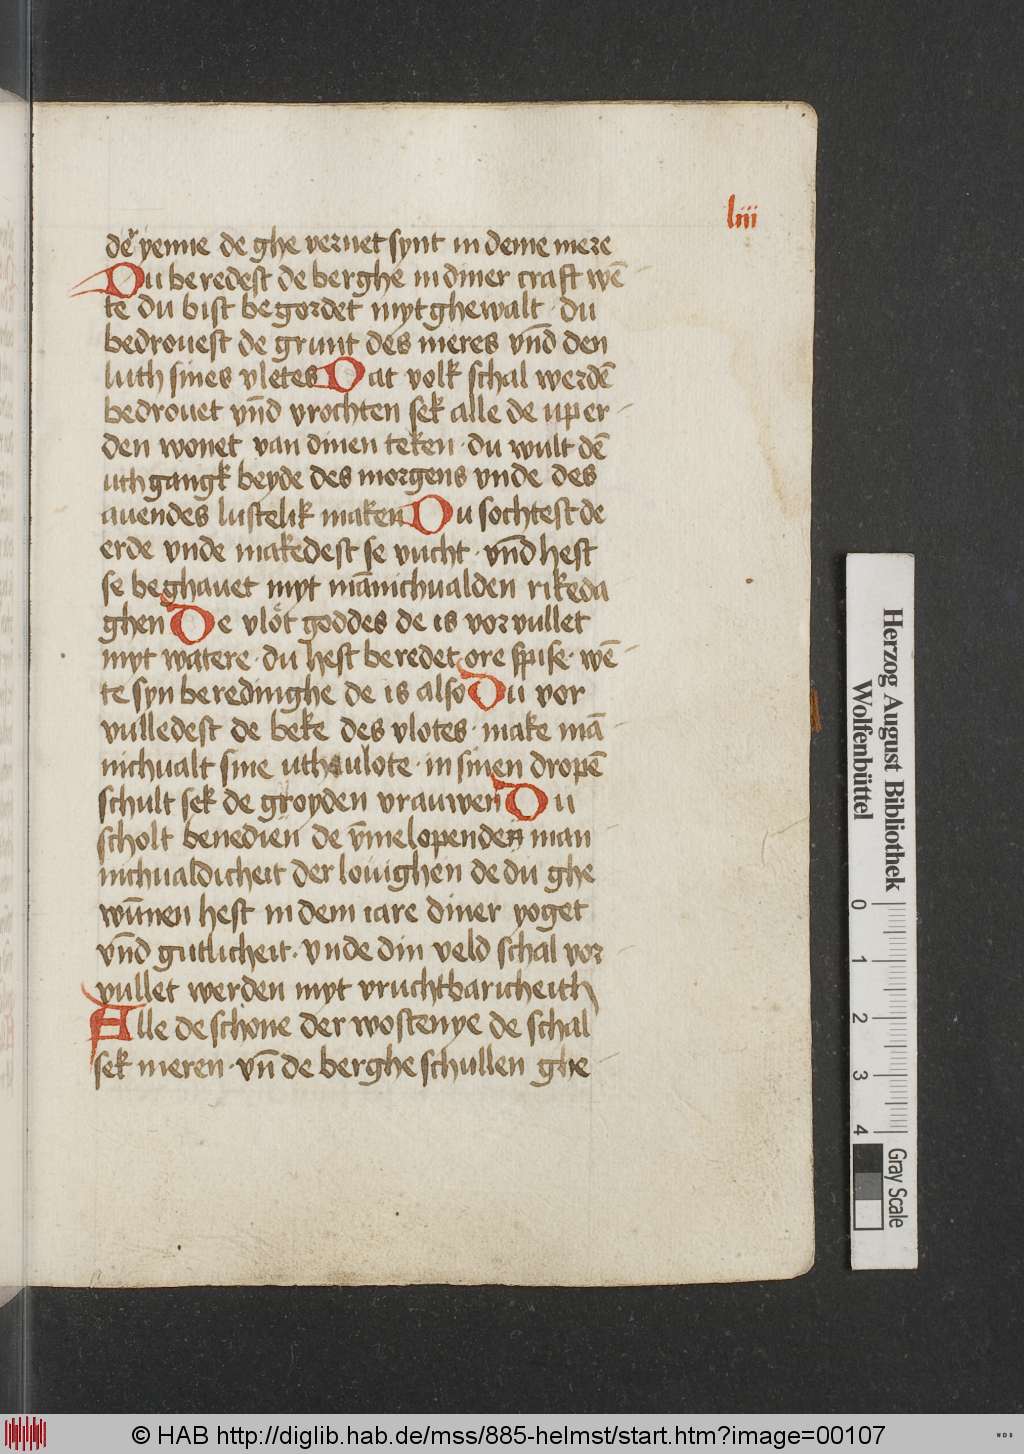 liii
dē yenne de ghe vernet synt in deme mere
Du beredest de berghe in diner craft wē
te du bist begordet myt ghewalt · du
bedrouest de grunt des meres vn̄d den
luth sines vletes Dat volk schal werdē
bedrouet vn̄d vrochten sek alle de up er
den wonet van dinen teken · du wult dē
uthgangk beyde des morgens vnde des
auendes lustelik maken Du sochtest de
erde vnde makedest se vucht · vn̄d hest
se beghauet myt mānichualden rikeda
ghen De vlot goddes de is vorvullet
myt watere · du hest beredet ore spise · wē
te syn beredinghe de is also Du vor
vulledest de beke des vlotes · make mā
nichualt sine uthvlote · in sinen dropē
schult sek de groyden vrauwen Du
scholt benedien de v̄melopenden man
nichualdicheit der louighen de du ghe
wūnen hest in dem iare diner yoget
vn̄d gutlicheit · vnde din veld schal vor
vullet werden myt vruchtbaricheith
Alle de schone der wostenye de schal
sek meren · vn̄ de berghe schullen ghe
Herzog August Bibliothek
Wolfenbüttel
0 1 2 3 4
Gray Scale
© HAB http://diglib.hab.de/mss/885-helmst/start.htm?image=00107